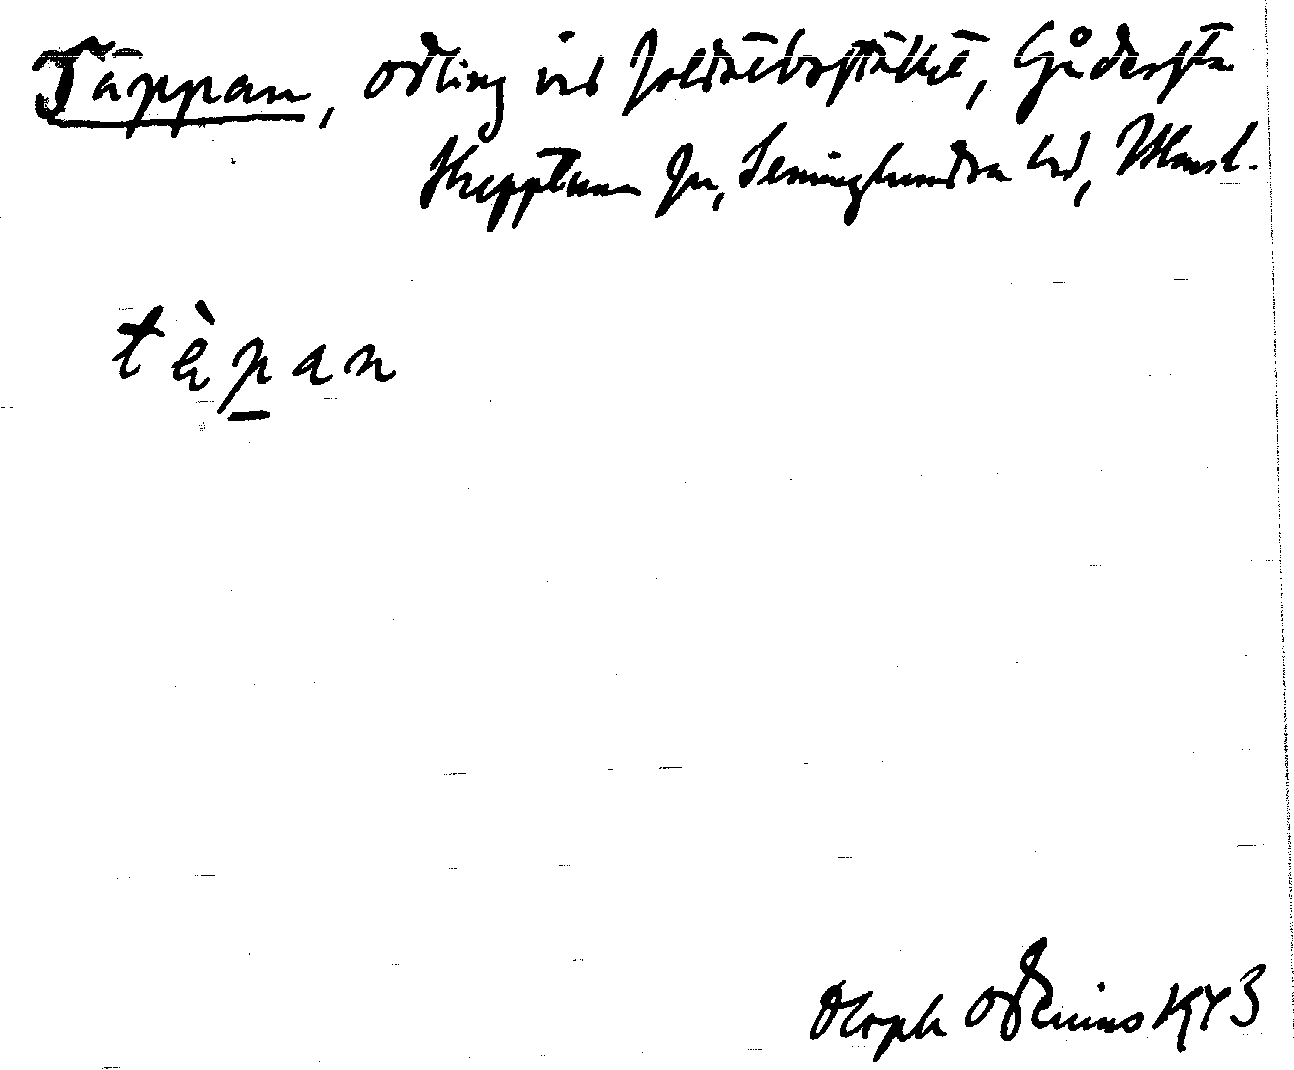 Täppan, odling vid soldatbostället, Gådersta
Skepptuna sn, Seminghundra hd, Uppland.
tɛ̀pan
Oloph Odenius 1943